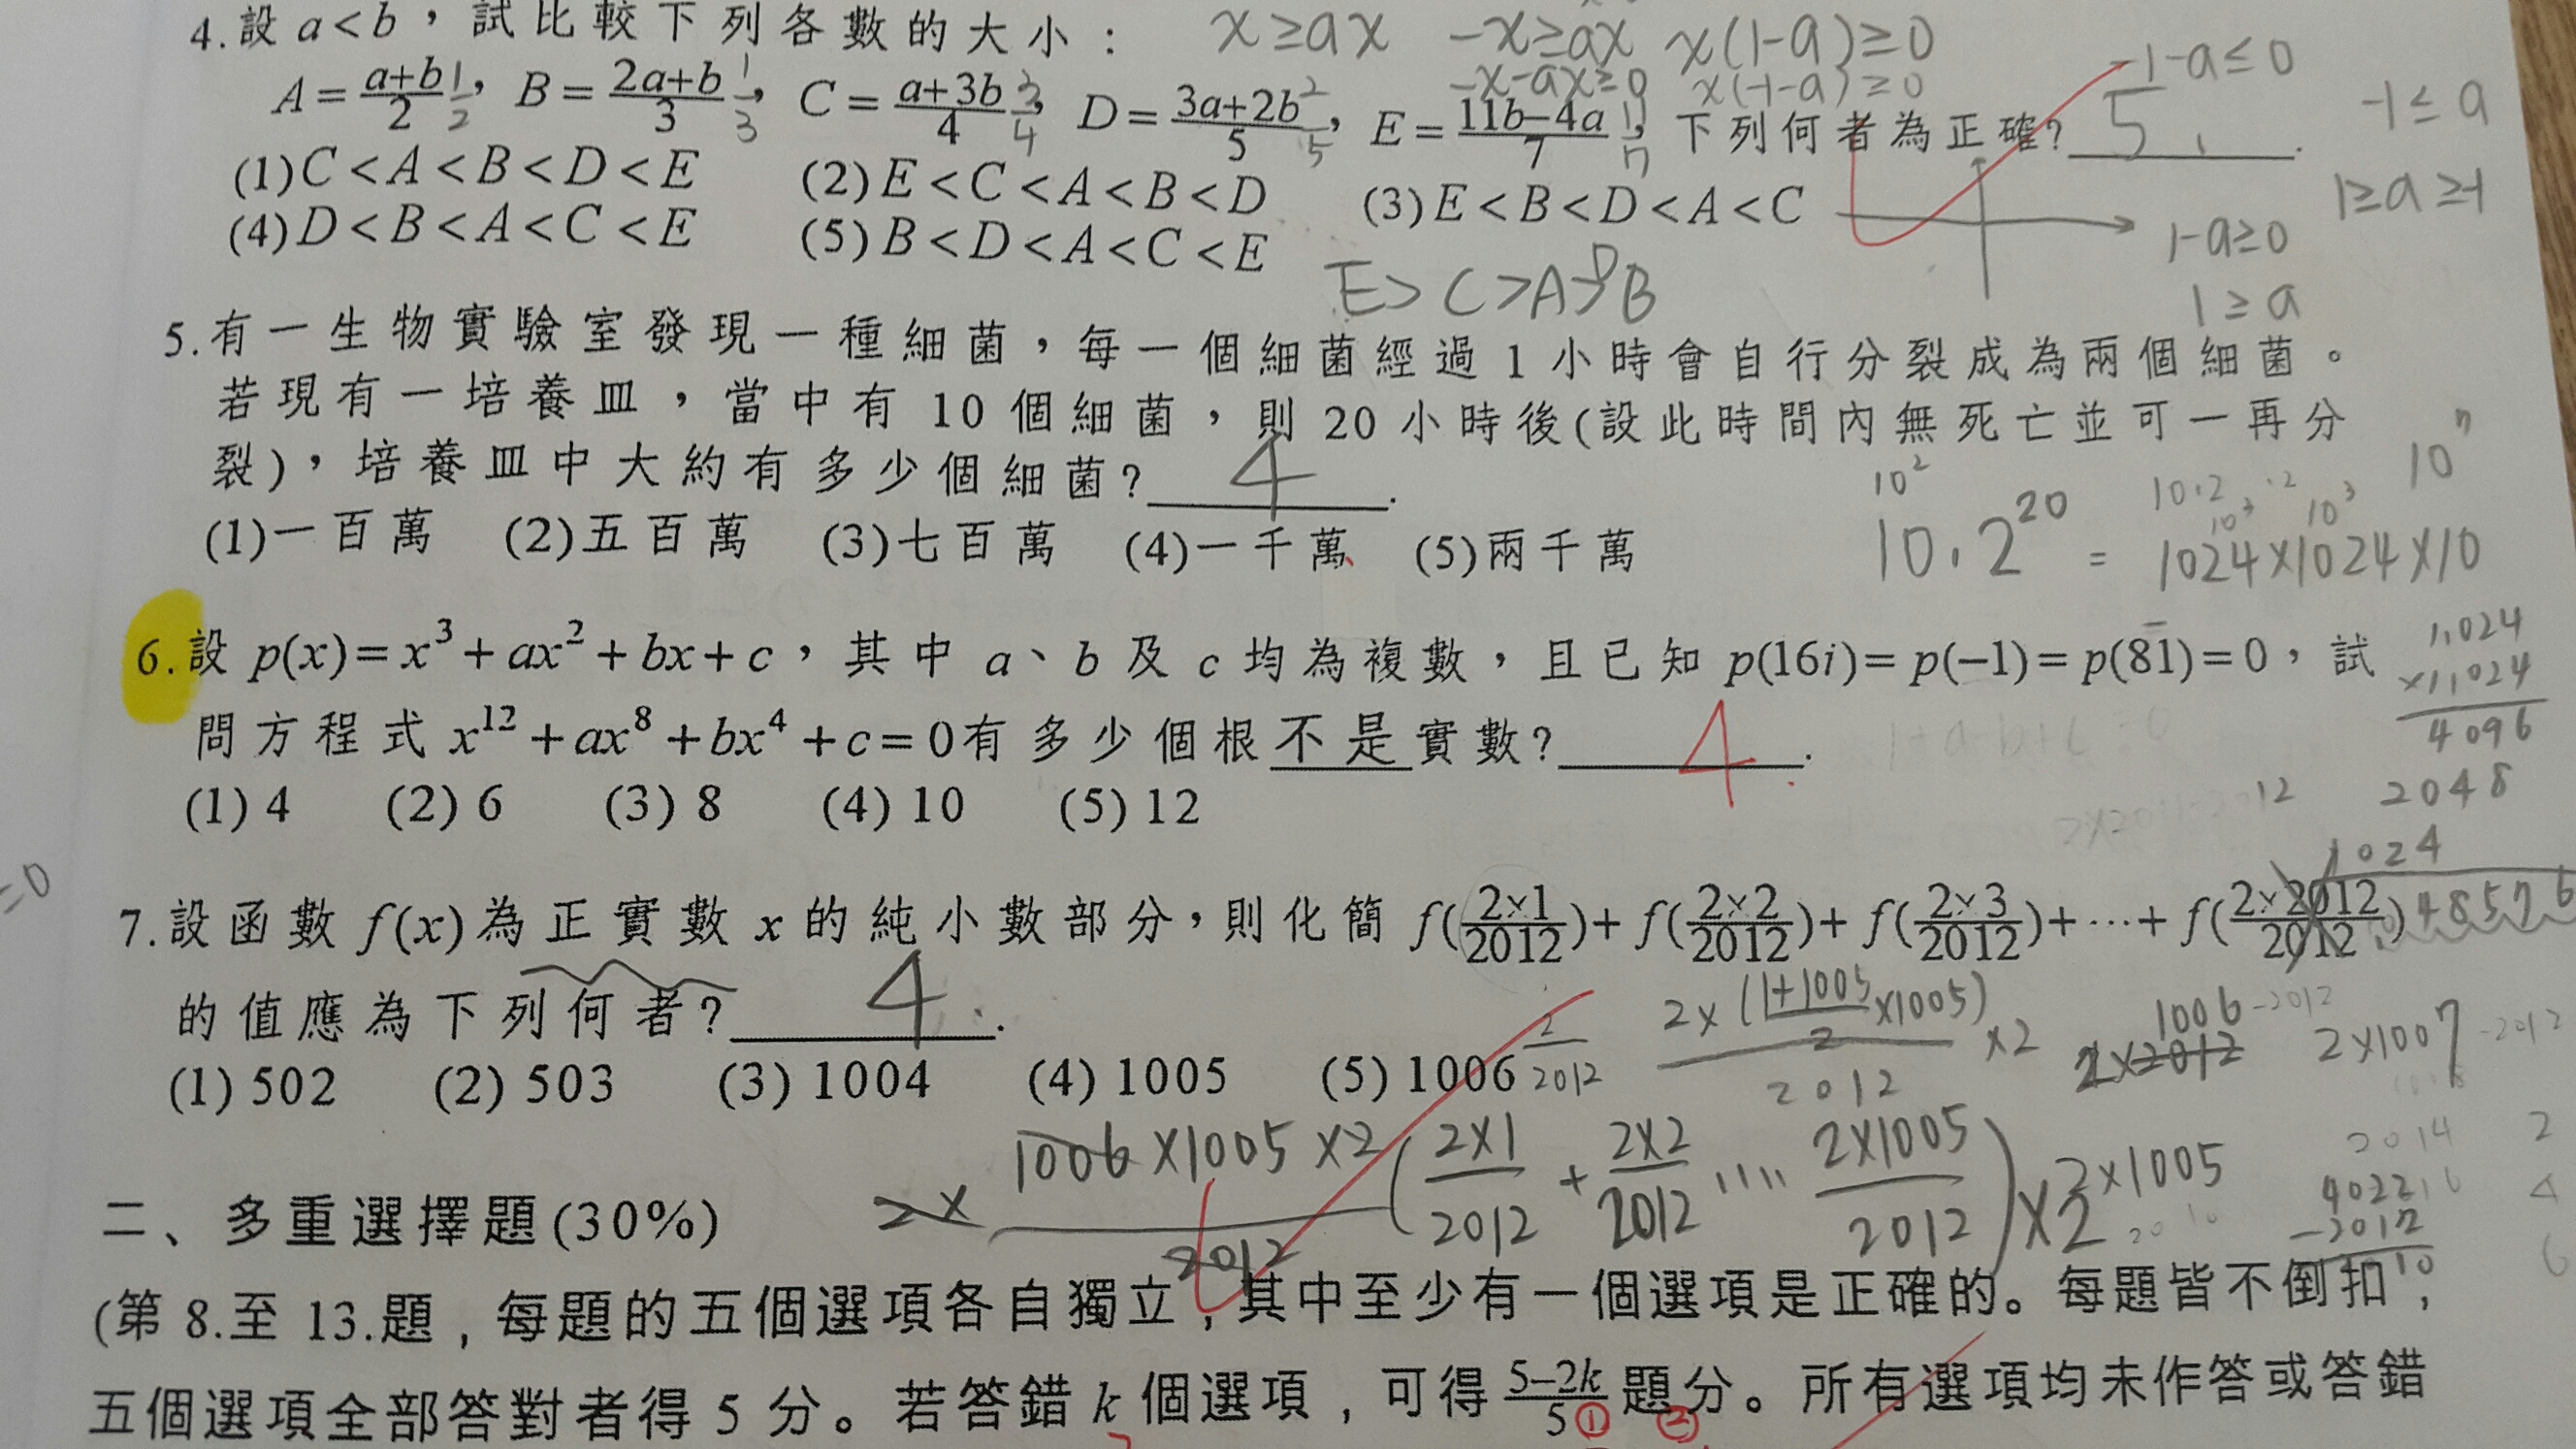 4.設 a<b，試比較下列各數的大小：
x≥ax -x≥ax x(1-a)≥0
-x-ax≥0 x(-1-a)≥0
-1-a≤0
-1≤a
A=\frac{a+b}{2} \frac{1}{2}，B=\frac{2a+b}{3} \frac{1}{3}，C=\frac{a+3b}{4} \frac{3}{4}，D=\frac{3a+2b}{5} \frac{2}{5}，E=\frac{11b-4a}{7} \frac{11}{7}，下列何者為正確?5.
(1)C<A<B<D<E (2)E<C<A<B<D (3)E<B<D<A<C
1≥a≥-1
(4)D<B<A<C<E (5)B<D<A<C<E
1-a≥0
1≥a
E>C>A>D>B
5.有一生物實驗室發現一種細菌，每一個細菌經過1小時會自行分裂成為兩個細菌。
若現有一培養皿，當中有10個細菌，則20小時後(設此時間內無死亡並可一再分
裂)，培養皿中大約有多少個細菌?4.
10² 10·2 ·2 10⁷
10³ 10³
(1)一百萬 (2)五百萬 (3)七百萬 (4)一千萬 (5)兩千萬
10·2²⁰ = 1024×1024×10
6.設 p(x)=x³+ax²+bx+c，其中 a、b 及 c 均為複數，且已知 p(16i)=p(−1)=p(81)=0，試
問方程式 x¹²+ax⁸+bx⁴+c=0有多少個根不是實數?4.
(1) 4 (2) 6 (3) 8 (4) 10 (5) 12
1,024
×1,024
4096
2048
1024
1048576
=0
7.設函數 f(x)為正實數 x 的純小數部分，則化簡 f(\frac{2×1}{2012})+f(\frac{2×2}{2012})+f(\frac{2×3}{2012})+⋯+f(\frac{2×2012}{2012})
的值應為下列何者?4.
(1) 502 (2) 503 (3) 1004 (4) 1005 (5) 1006
\frac{2}{2012}
\frac{2×(\frac{1+1005}{2}×1005)}{2012}×2
1006-2012
2×2012
2×1007-2012
2×\frac{1006×1005×2}{2012}
(\frac{2×1}{2012}+\frac{2×2}{2012}....\frac{2×1005}{2012})×2
2×1005
2014
4022
-2012
2
4
6
二、多重選擇題(30%)
(第 8.至 13.題，每題的五個選項各自獨立，其中至少有一個選項是正確的。每題皆不倒扣，
五個選項全部答對者得 5 分。若答錯 k 個選項，可得\frac{5-2k}{5}題分。所有選項均未作答或答錯
① ②